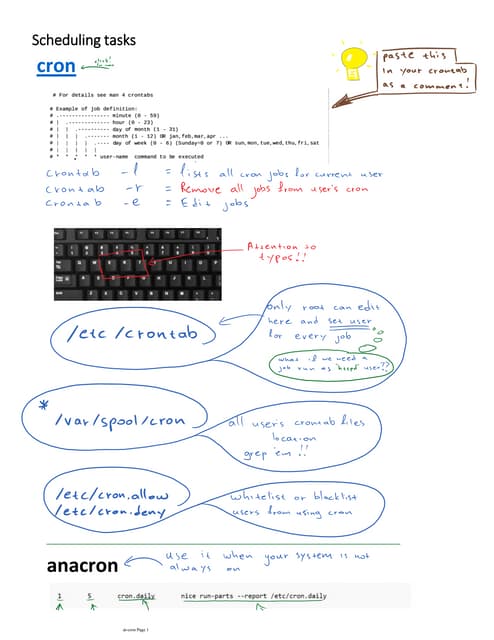 Scheduling tasks
cron
paste this
in your crontab
as a comment!
# For details see man 4 crontabs
# Example of job definition:
# .---------------- minute (0 - 59)
# | .------------- hour (0 - 23)
# | | .---------- day of month (1 - 31)
# | | | .------- month (1 - 12) OR jan,feb,mar,apr ...
# | | | | .---- day of week (0 - 6) (Sunday=0 or 7) OR sun,mon,tue,wed,thu,fri,sat
# | | | | |
# * * * * * user-name command to be executed
crontab -l = lists all cron jobs for current user
crontab -r = Remove all jobs from user's cron
crontab -e = Edit jobs
Attention to
typos!!
/etc/crontab
only root can edit
here and set user
for every job
what if we need a
job run as "user"??
*
/var/spool/cron
all user's crontab files
location
grep 'em!!
/etc/cron.allow
/etc/cron.deny
whitelist or blacklist
users from using cron
anacron
use it when your system is not
always on
1 5 cron.daily nice run-parts --report /etc/cron.daily
Page 1